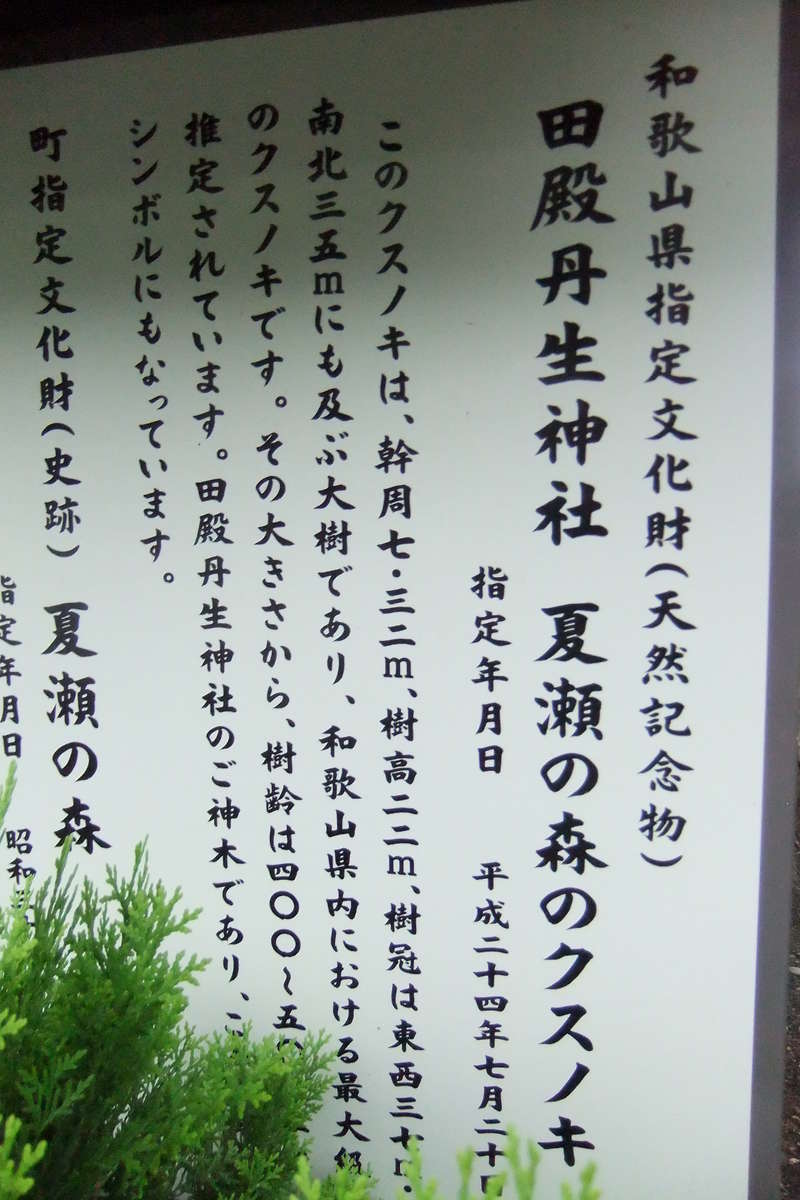 和歌山県指定文化財（天然記念物）
田殿丹生神社 夏瀬の森のクスノキ
指定年月日 平成二十四年七月二十日
このクスノキは、幹周七・三二ｍ、樹高二二ｍ、樹冠は東西三十ｍ・
南北三五ｍにも及ぶ大樹であり、和歌山県内における最大級
のクスノキです。その大きさから、樹齢は四〇〇～五〇
推定されています。田殿丹生神社のご神木であり、こ
シンボルにもなっています。
町指定文化財（史跡） 夏瀬の森
指定年月日 昭和三